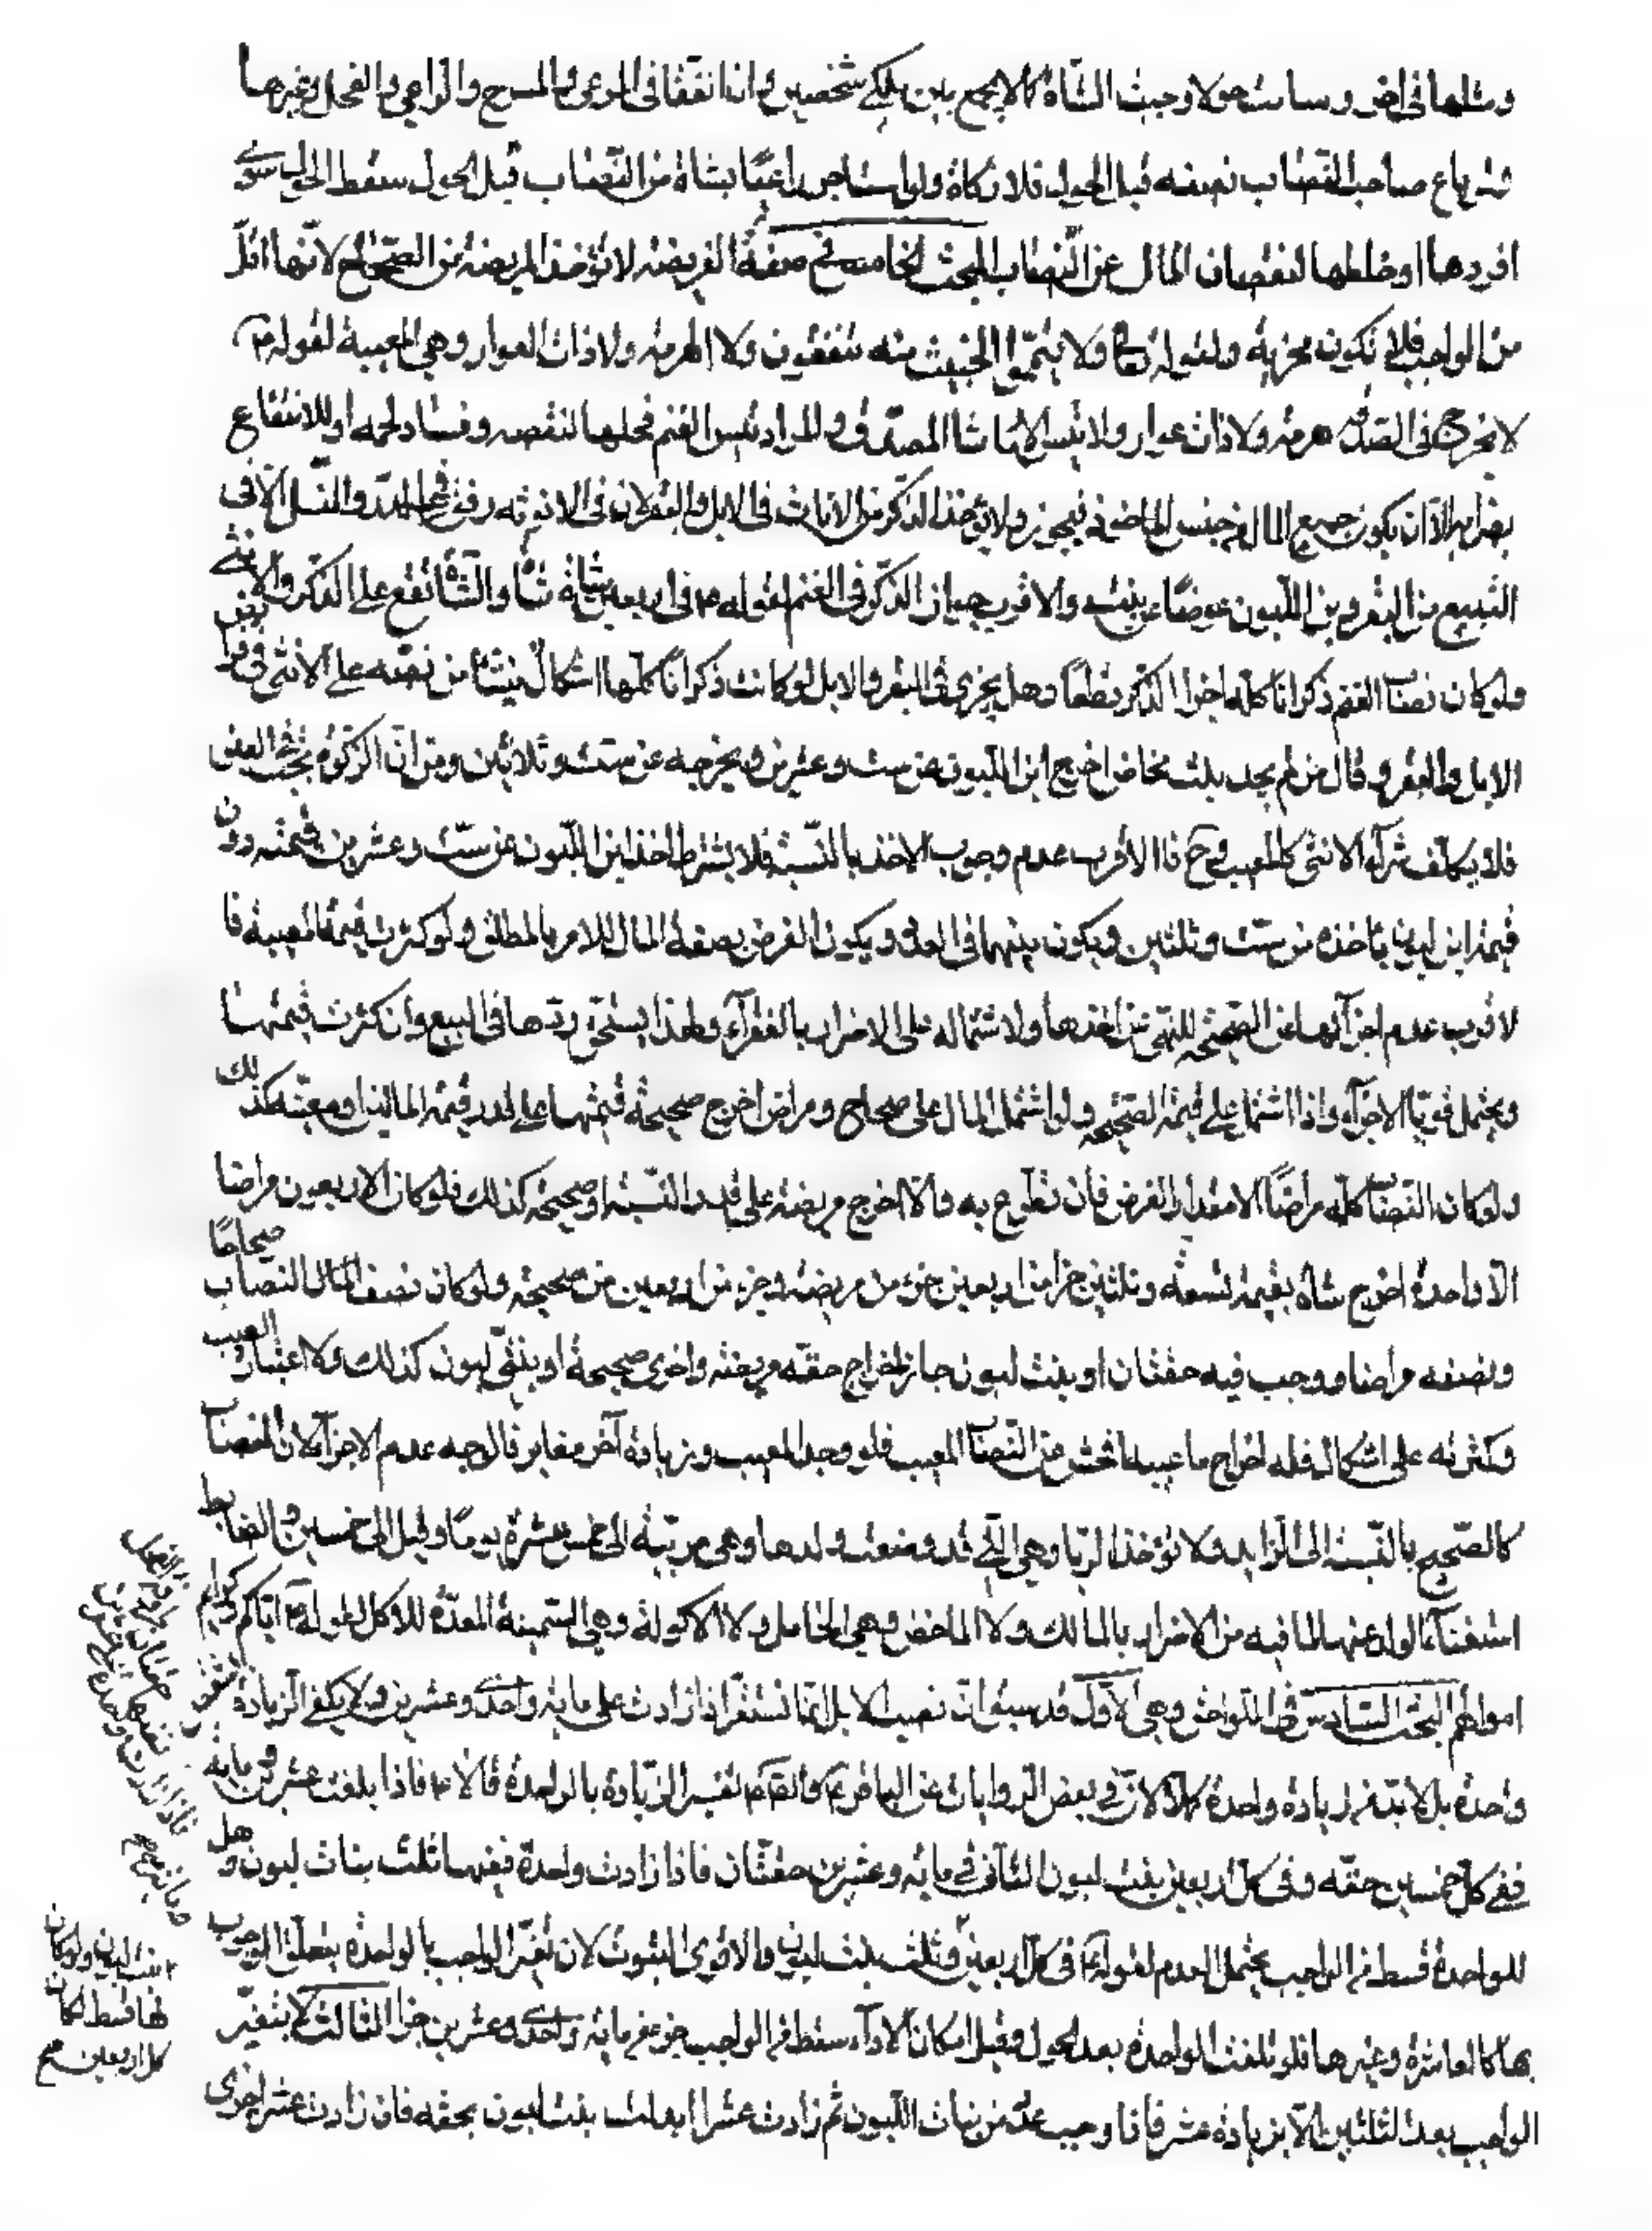 ومثلها في اخرى وسامت حولا وجبت الشاة كما لا يجمع بين ملكي شخصين وان اتفقا في المرعى والمسرح والراعي والفحل وغيرها
فلو باع صاحب النصاب نصفه قبل الحول فلا زكاة ولو استاجر راعيًا بشاة من النصاب قبل الحول سقط الحول سوى
افردها او خلطها لنقصان المال عن النصاب البحث الخامس في صفة الفريضة لا تؤخذ المريضة من الصحاح لانها اقل
من الواجب فلا تكون مجزية ولقوله تعالى ولا تيمموا الخبيث منه تنفقون ولا الهرمة ولا ذات العوار وهي المعيبة لقوله
لا يخرج في الصدقة هرمة ولا ذات عوار ولا تيس الا ما شا المصدق والمراد تيس الغنم فحلها لنقصه وفساد لحمه او للانتفاع
بضرابه الا ان يكون جميع المال من جنس الماخوذ فيجوز ولا يؤخذ الذكر من الاناث في الابل والبقر لان في الانوثة رفق في الدر والنسل الا في
التبيع من البقر وابن اللبون عوضًا عن بنته والاقرب جواز الذكر في الغنم لقوله في اربعين شاة شاة والشاة تقع على الذكر والانثى
ولو كان نصاب الغنم ذكرانا كله اجزا الذكر قطعًا وهل يجزى في البقر والابل لو كانت ذكرانًا كلها اشكال ينشا من نصه على الانثى في فرايض
الابل والبقر وقال من لم يجد بنت مخاض اخرج ابن اللبون عن ست وعشرين ويخرجه عن ست وثلاثين ومن ان الزكوة تجب في العين
فلا يكلف شراء الانثى كالمعيب وح فالاقرب عدم وجوب الاخذ بالنسبة فلا يشترط اخذ ابن اللبون عن ست وعشرين قيمته دون
قيمة ابن لبون ياخذه من ست وثلثين ويكون بينهما في العدل ويكون الفرض بصفة المال للامر بالمطلق ولو كثرت قيمة المعيبة فا
لاقرب عدم اجزائها عن الصحيحة للنهي عن اخذها ولاشتماله على الاضرار بالفقراء ولهذا يستحق ردها في البيع وان كثرت قيمتها
ويحتمل قويًا الاجزاء اذا اشتمل على قيمة الصحيحة ولو اشتمل المال على صحاح ومراض اخرج صحيحة قيمتها على قدر قيمة المالين او معيبة كذلك
ولو كان النصاب كله مراضًا الا مقدار الفرض فان تطوع به والا اخرج مريضة على قدر النسبة او صحيحة كذلك فلو كان الاربعون مراضا
الا واحدة اخرج شاة بقيمة تسعة وثلثين جزا من اربعين جزء من مريضة وجزء من اربعين من صحيحة ولو كان نصف المال النصاب صحاحًا
ونصفه مراضا ووجب فيه حقتان او بنت لبون جاز اخراج حقة مريضة واخرى صحيحة او بنتي لبون كذلك ولا اعتبار بقلة العيب
وكثرته على اشكال فله اخراج ما عيبه افحش من النصاب المعيب فلو وجد المعيب وزيادة آخر مغاير فالوجه عدم الاجزاء لان النصاب
كالصحيح بالنسبة الى الزايد ولا تؤخذ الربا وهي التي قد وضعت ولدها وهي مربية الى خمس عشرة يومًا وقيل الى خمسين والضابط
استغناء الولد عنها لما فيه من الاضرار بالمالك ولا الماخض وهي الحامل ولا الاكولة وهي السمينة المعدة للاكل لقوله اياكم وكرايم
اموالهم البحث السادس في اللواحق وهي الاول قد سبق ان نصب الابل انما تستقر اذا زادت على ماية واحدى وعشرين ولا يكفي الزيادة
واحدة بل لا بد من زيادة واحدة كاملة لان في بعض الروايات عن الباقر والصادق تفسير الزيادة بالواحدة قالا فاذا بلغت عشرين وماية
ففي كل خمسين حقة وفي كل اربعين بنت لبون الثاني في ماية وعشرين حقتان فاذا زادت واحدة ففيها ثلث بنات لبون وهل
للواحدة قسط من الواجب يحتمل العدم لقوله في كل اربعين وثلث بنت لبون والاقوى الثبوت لان تغير الواجب بالواحدة يتعلق الوجوب
بها كالعاشرة وغيرها فلو تلفت الواحدة بعد الحول وقبل امكان الاداء سقط من الواجب جزء من ماية واحدى وعشرين جزا الثالث لا يتغير
الواجب بعد الثلثين الا بزيادة عشر فاذا وجب عدد من بنات اللبون ثم زادت عشرا ابدلت بنت لبون بحقه فان زادت عشرا اخرى
بنت لبون ولو كان
لها قسط لكان
كل اربعين صح